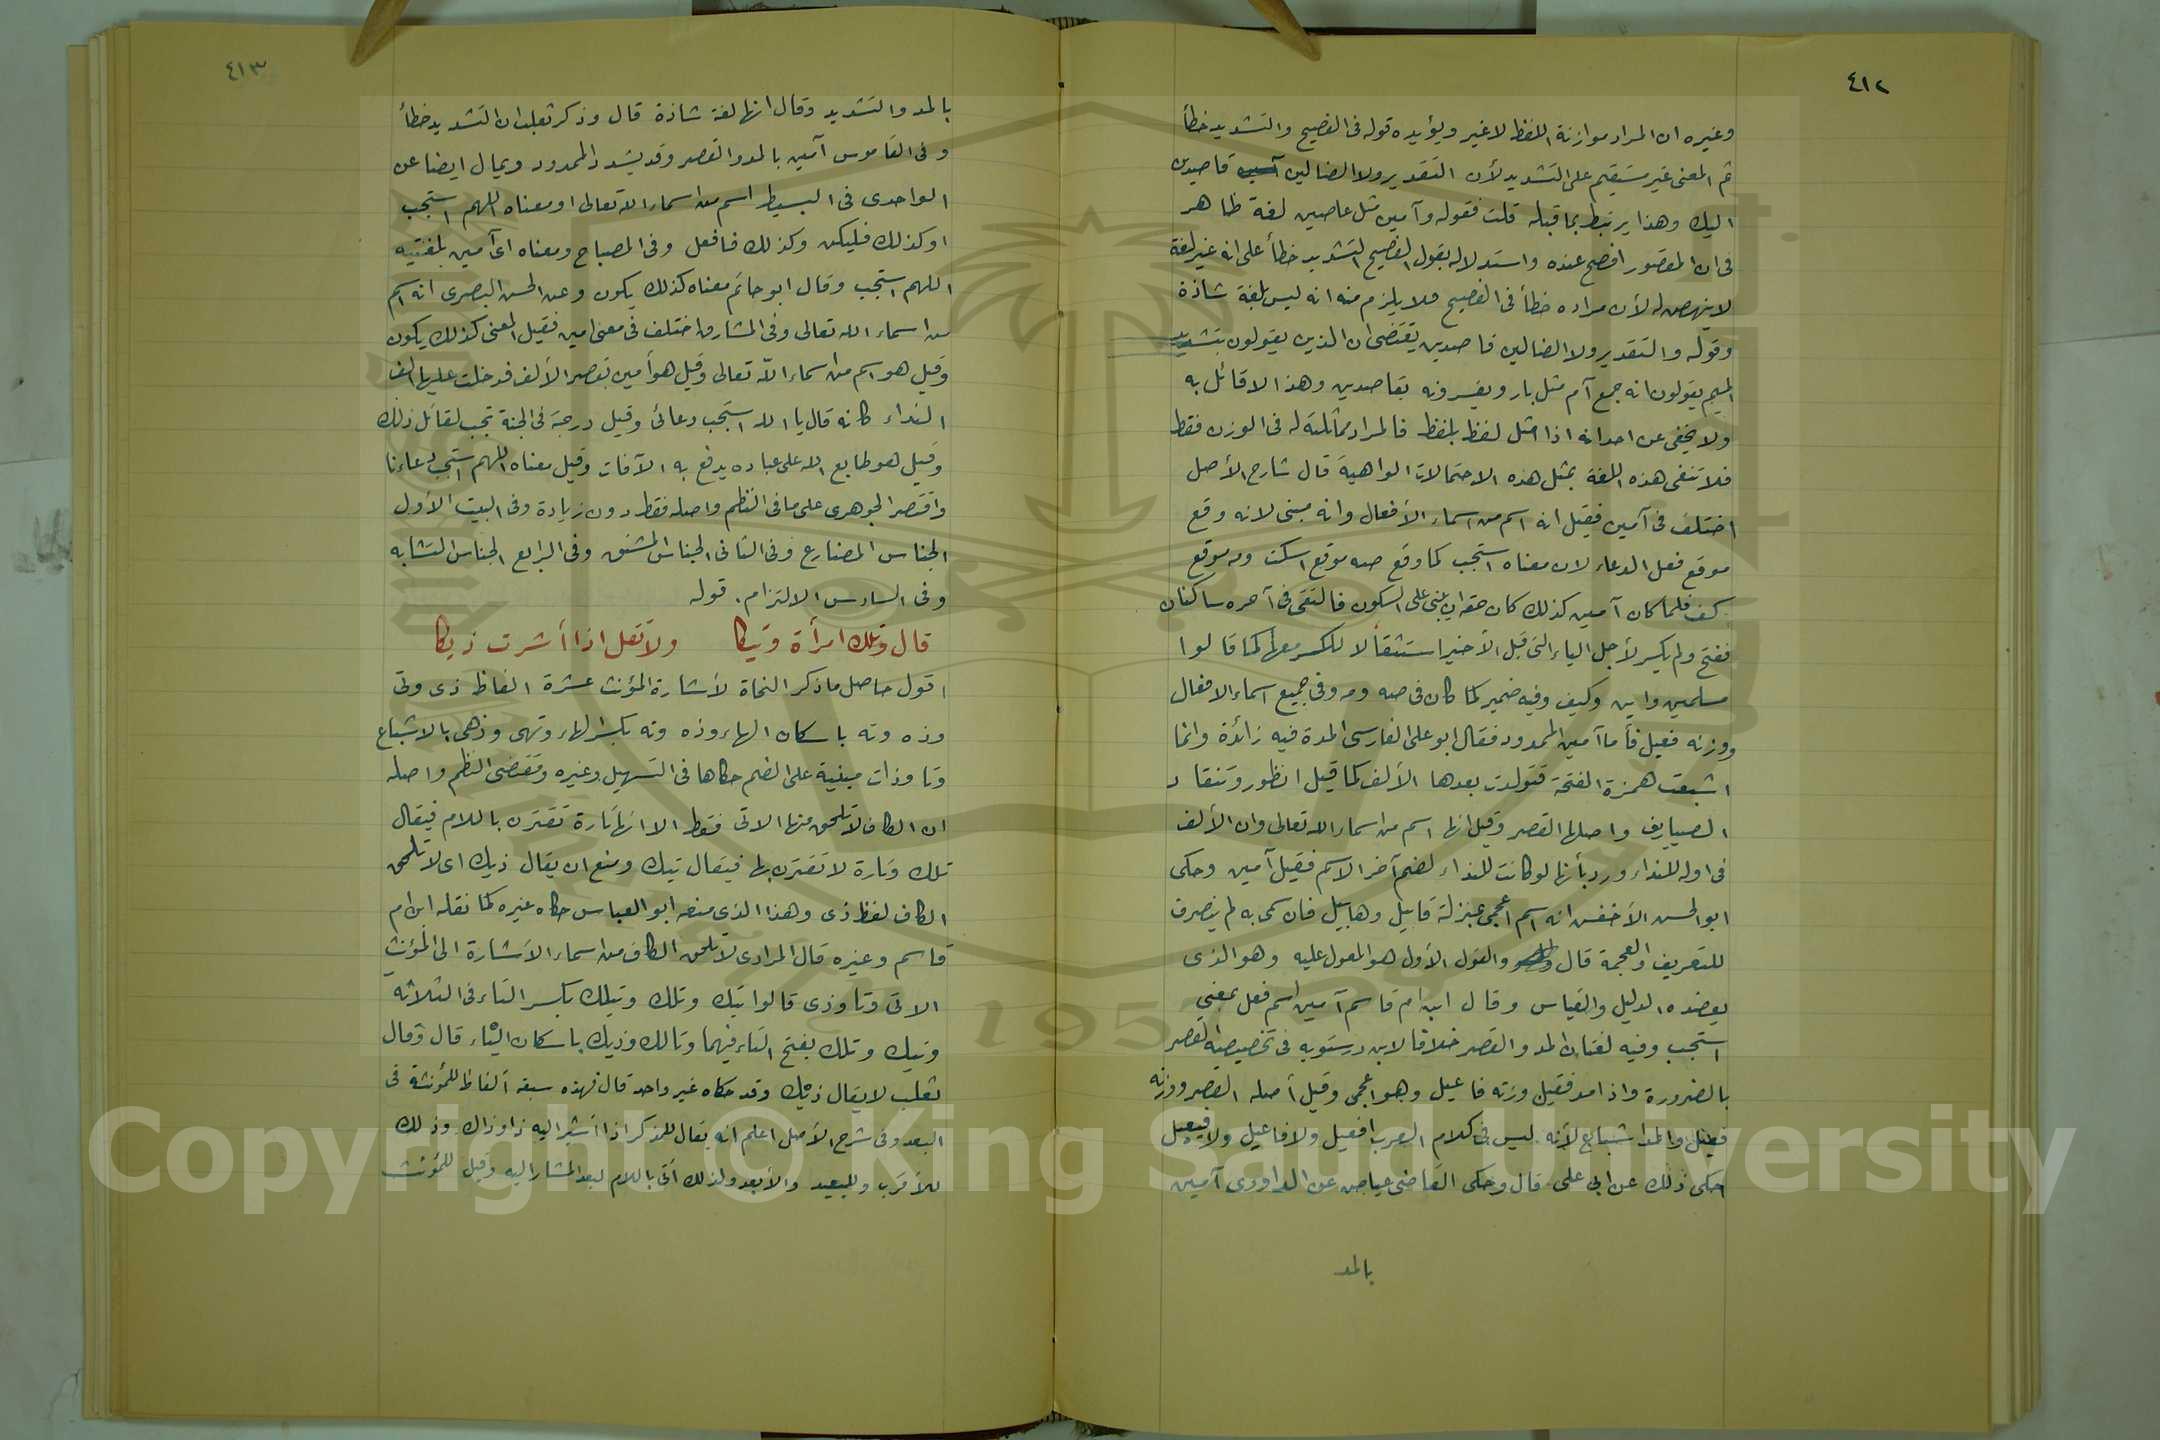 ٤١٢
وغيره ان المراد موازنة اللفظ لا غير ويؤيده قوله فى الفصيح والتشديد خطأ
ثم المعنى غير مستقيم على التشديد لأن التقدير ولا الضالين قاصدين
اليك وهذا يرتبط بما قبله قلت فقوله وآمين مثل عاصين لغة ظاهر
فى ان المقصور افصح عنده واستدلاله بقول الفصيح التشديد خطأ على انه غير لغة
لا ينهض له لأن مراده خطأ فى الفصيح فلا يلزم منه انه ليس بلغة شاذة
وقوله والتقدير ولا الضالين قاصدين يقتضى ان الذين يقولون بتشديد
الميم يقولون انه جمع آم مثل بار ويفسرونه بقاصدين وهذا لا قائل به
ولا يخفى عن احد انه اذا مثل لفظ بلفظ فالمراد مماثلته له فى الوزن فقط
فلا تنفى هذه اللغة بمثل هذه الاحتمالات الواهية قال شارح الأصل
اختلف فى آمين فقيل انه اسم من اسماء الأفعال وانه مبنى لانه وقع
موقع فعل الدعاء لان معناه استجب كما وقع صه موقع اسكت ومه موقع
كف فلما كان آمين كذلك كان حقه ان يبنى على السكون فالتقى فى آخره ساكنان
ففتح ولم يكسر لأجل الياء التى قبل الأخير استثقالا للكسر معها كما قالوا
مسلمين واين وكيف وفيه ضمير كما كان فى صه ومه وفى جميع اسماء الافعال
ووزنه فعيل فأما آمين الممدود فقال ابو على الفارسى المدة فيه زائدة وانما
اشبعت همزة الفتحة فتولدت بعدها الألف كما قيل انظور وتنقاد
الصياريف واصلها القصر وقيل انها اسم من اسماء الله تعالى وان الألف
فى اوله للنداء ورد بأنها لو كانت للنداء لضم آخر الاسم فقيل آمين وحكى
ابو الحسن الأخفش انه اسم اعجمى بمنزلة قابيل وهابيل فان سمى به لم ينصرف
للتعريف والعجمة قال والقول الأول هو المعول عليه وهو الذى
يعضده الدليل والقياس وقال ابن ام قاسم آمين اسم فعل بمعنى
استجب وفيه لغتان المد والقصر خلافا لابن درستويه فى تخصيصه القصر
بالضرورة واذا مد فقيل وزنه فاعيل وهو اعجمى وقيل أصله القصر ووزنه
فعيل والمد اشباع لأنه ليس فى كلام العرب افعيل ولا فاعيل ولا فيعيل
حكى ذلك عن ابى على قال وحكى القاضى عياض عن الداوودى آمين
بالمد
٤١٣
بالمد والتشديد وقال انها لغة شاذة قال وذكر ثعلب ان التشديد خطأ
وفى القاموس آمين بالمد والقصر وقد يشدد الممدود ويمال ايضا عن
الواحدى فى البسيط اسم من اسماء الله تعالى او معناه اللهم استجب
او كذلك فليكن وكذلك فافعل وفى المصباح ومعناه اى آمين بلغتيه
اللهم استجب وقال ابو حاتم معناه كذلك يكون وعن الحسن البصرى انه اسم
من اسماء الله تعالى وفى المشارق اختلف فى معنى امين فقيل المعنى كذلك يكون
وقيل هو اسم من اسماء الله تعالى وقيل هو أمين بقصر الألف فدخلت عليها الف
النداء كانه قال يا الله استجب دعائى وقيل درجة فى الجنة تجب لقائل ذلك
وقيل هو طابع الله على عباده يدفع به الآفات وقيل معناه اللهم استجب دعاءنا
واقتصر الجوهرى على ما فى النظم واصله فقط دون زيادة وفى البيت الأول
الجناس المضارع وفى الثانى الجناس المشتق وفى الرابع الجناس المتشابه
وفى السادس الالتزام. قوله
قال وتلك امرأة وتيكا ولا تقل اذا أشرت ذيكا
اقول حاصل ما ذكر النحاة لأشارة المؤنث عشرة الفاظ ذى وتى
وذه وته باسكان الهاء وذه وته بكسر الهاء وتهى وذهى بالاشباع
وتا وذات مبنية على الضم حكاها فى التسهيل وغيره ومقتضى النظم واصله
ان الكاف لا تلحق منها الا تى فقط الا انها تارة تقترن باللام فيقال
تلك وتارة لا تقترن بها فيقال تيك ومنع ان يقال ذيك اى لا تلحق
الكاف لفظ ذى وهذا الذى منعه ابو العباس حكاه غيره كما نقله ابن ام
قاسم وغيره قال المرادى لا تلحق الكاف من اسماء الأشارة الى المؤنث
الا تى وتا وذى قالوا تيك وتلك وتيلك بكسر التاء فى الثلاثة
وتيك وتلك بفتح التاء فيهما وتالك وذيك باسكان الياء قال وقال
ثعلب لا يقال ذيك وقد حكاه غير واحد قال فهذه سبعة ألفاظ للمؤنثة فى
البعد وفى شرح الأصل اعلم انه يقال للمذكر اذا أشير اليه ذا وذاك وذلك
للأقرب وللبعيد والأبعد ولذلك أتى باللام لبعد المشار اليه وقيل للمؤنث
Copyright © King Saud University
1957